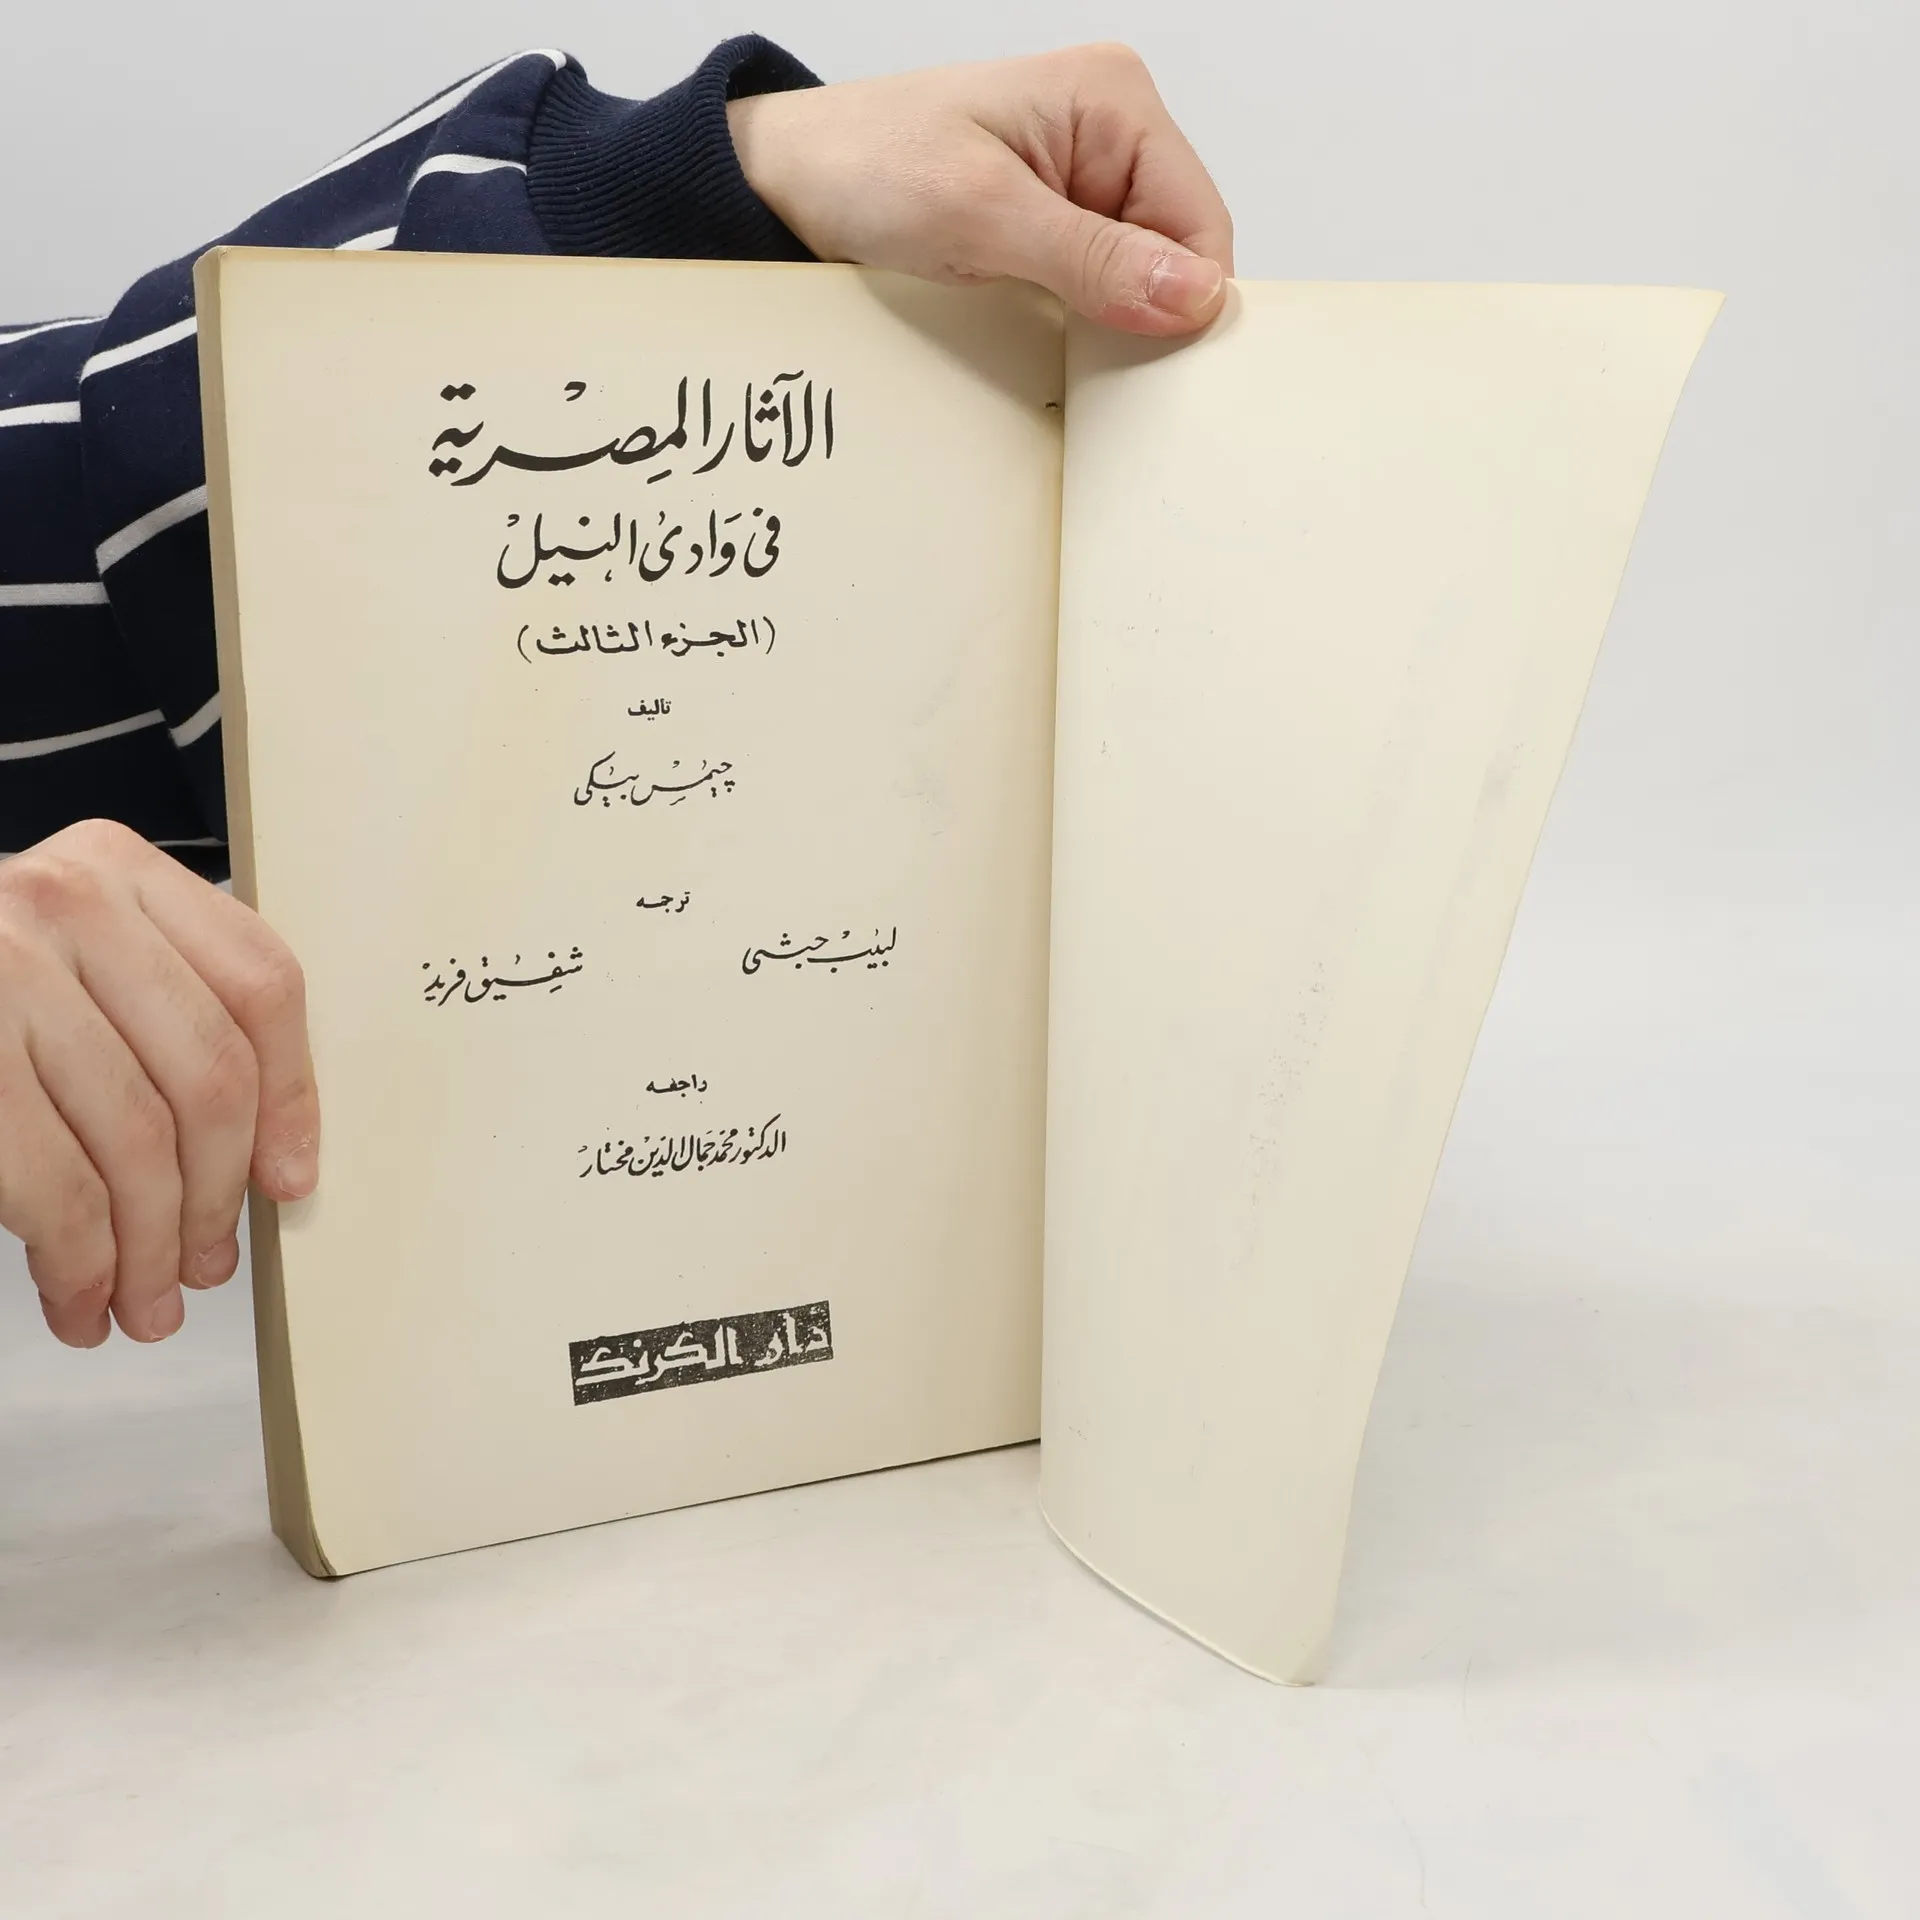 الآثار المصرية
فى وادى النيل
(الجزء الثالث)
تأليف
چيمس بيكى
ترجمه
لبيب حبشى شفيق فريد
راجعه
الدكتور محمد جمال الدين مختار
دار الكرنك